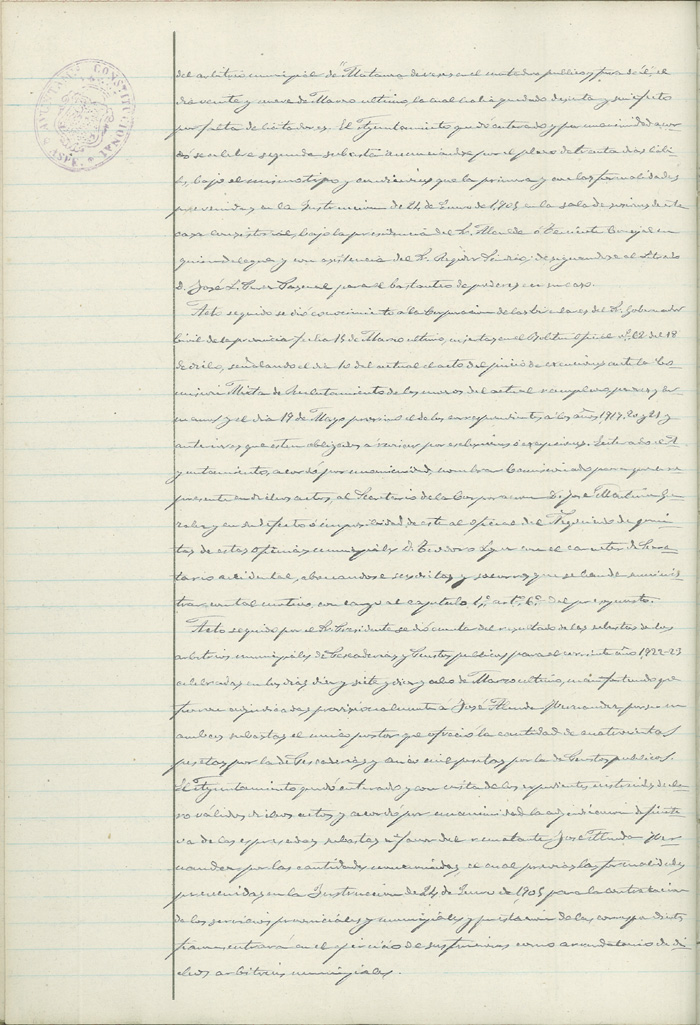 del arbitrio municipal de "Matanza de reses en el matadero publico y fuera de él, el
dia veinte y nueve de Marzo ultimo, la cual habia quedado desierta y sin efecto
por falta de licitadores. El Ayuntamiento quedó enterado y por unanimidad acor-
dó se celebre segunda subasta anunciandose por el plazo de treinta dias habi-
les, bajo el mismo tipo y condiciones que la primera y con las formalidades
prevenidas en la Instruccion de 24 de Enero de 1905 en la sala de sesiones de esta
casa consistorial, bajo la presidencia del Sr. Alcalde ó Teniente Concejal en
quien delegue y con asistencia del Sr. Regidor Sindico designandose al Letrado
D. José L. Pascual para el bastanteo de poderes en su caso.
Acto seguido se dió conocimiento a la Corporacion de las Circulares del Sr. Gobernador
Civil de la provincia fecha 15 de Marzo ultimo, insertas en el Boletin oficial nº 62 del 18
de dicho, señalando el dia 10 del actual el acto del juicio de exenciones ante la Co-
mision Mixta de Reclutamiento de los mozos del actual reemplazo
y el dia 19 de Mayo proximo el de los correspondientes a los años 1919, 20 y 21 y
anteriores que esten obligados a revisar por exclusiones ó excepciones. Enterado el A-
yuntamiento, acordó por unanimidad, nombrar Comisionado para que re-
presente en dichos actos, al Secretario de la Corporacion D. José Martinez
y en su defecto ó imposibilidad de este al oficial del Negociado de quin-
tas de estas oficinas municipales D. Teodoro con el caracter de Secre-
tario accidental, abonandose las dietas y socorros que se han de suminis-
trar con tal motivo, con cargo al capitulo 1º, artº 6º del presupuesto.
Acto seguido por el Sr. Presidente se dió cuenta del resultado de las subastas de los
arbitrios municipales de Pescaderias y Puestos publicos para el corriente año 1922-23
celebradas en los dias diez y siete y diez y ocho de Marzo ultimo, manifestando que
fueron adjudicadas provisionalmente á José Hernandez por ser en
ambas subastas el unico postor que ofreció la cantidad de cuatrocientas
pesetas por la de Pescaderias y cinco mil pesetas por la de Puestos publicos.
El Ayuntamiento quedó enterado y con vista de los expedientes instruidos decla-
ró válidos dichos actos y acordó por unanimidad la adjudicacion definiti-
va de las expresadas subastas a favor del rematante José Her-
nandez por las cantidades mencionadas, el cual previas las formalidades
prevenidas en la Instruccion de 24 de Enero de 1905 para la contratacion
de los servicios provinciales y municipales y prestacion de las correspondientes
fianzas entrará en el ejercicio de sus funciones como arrendatario de di-
chos arbitrios municipales.